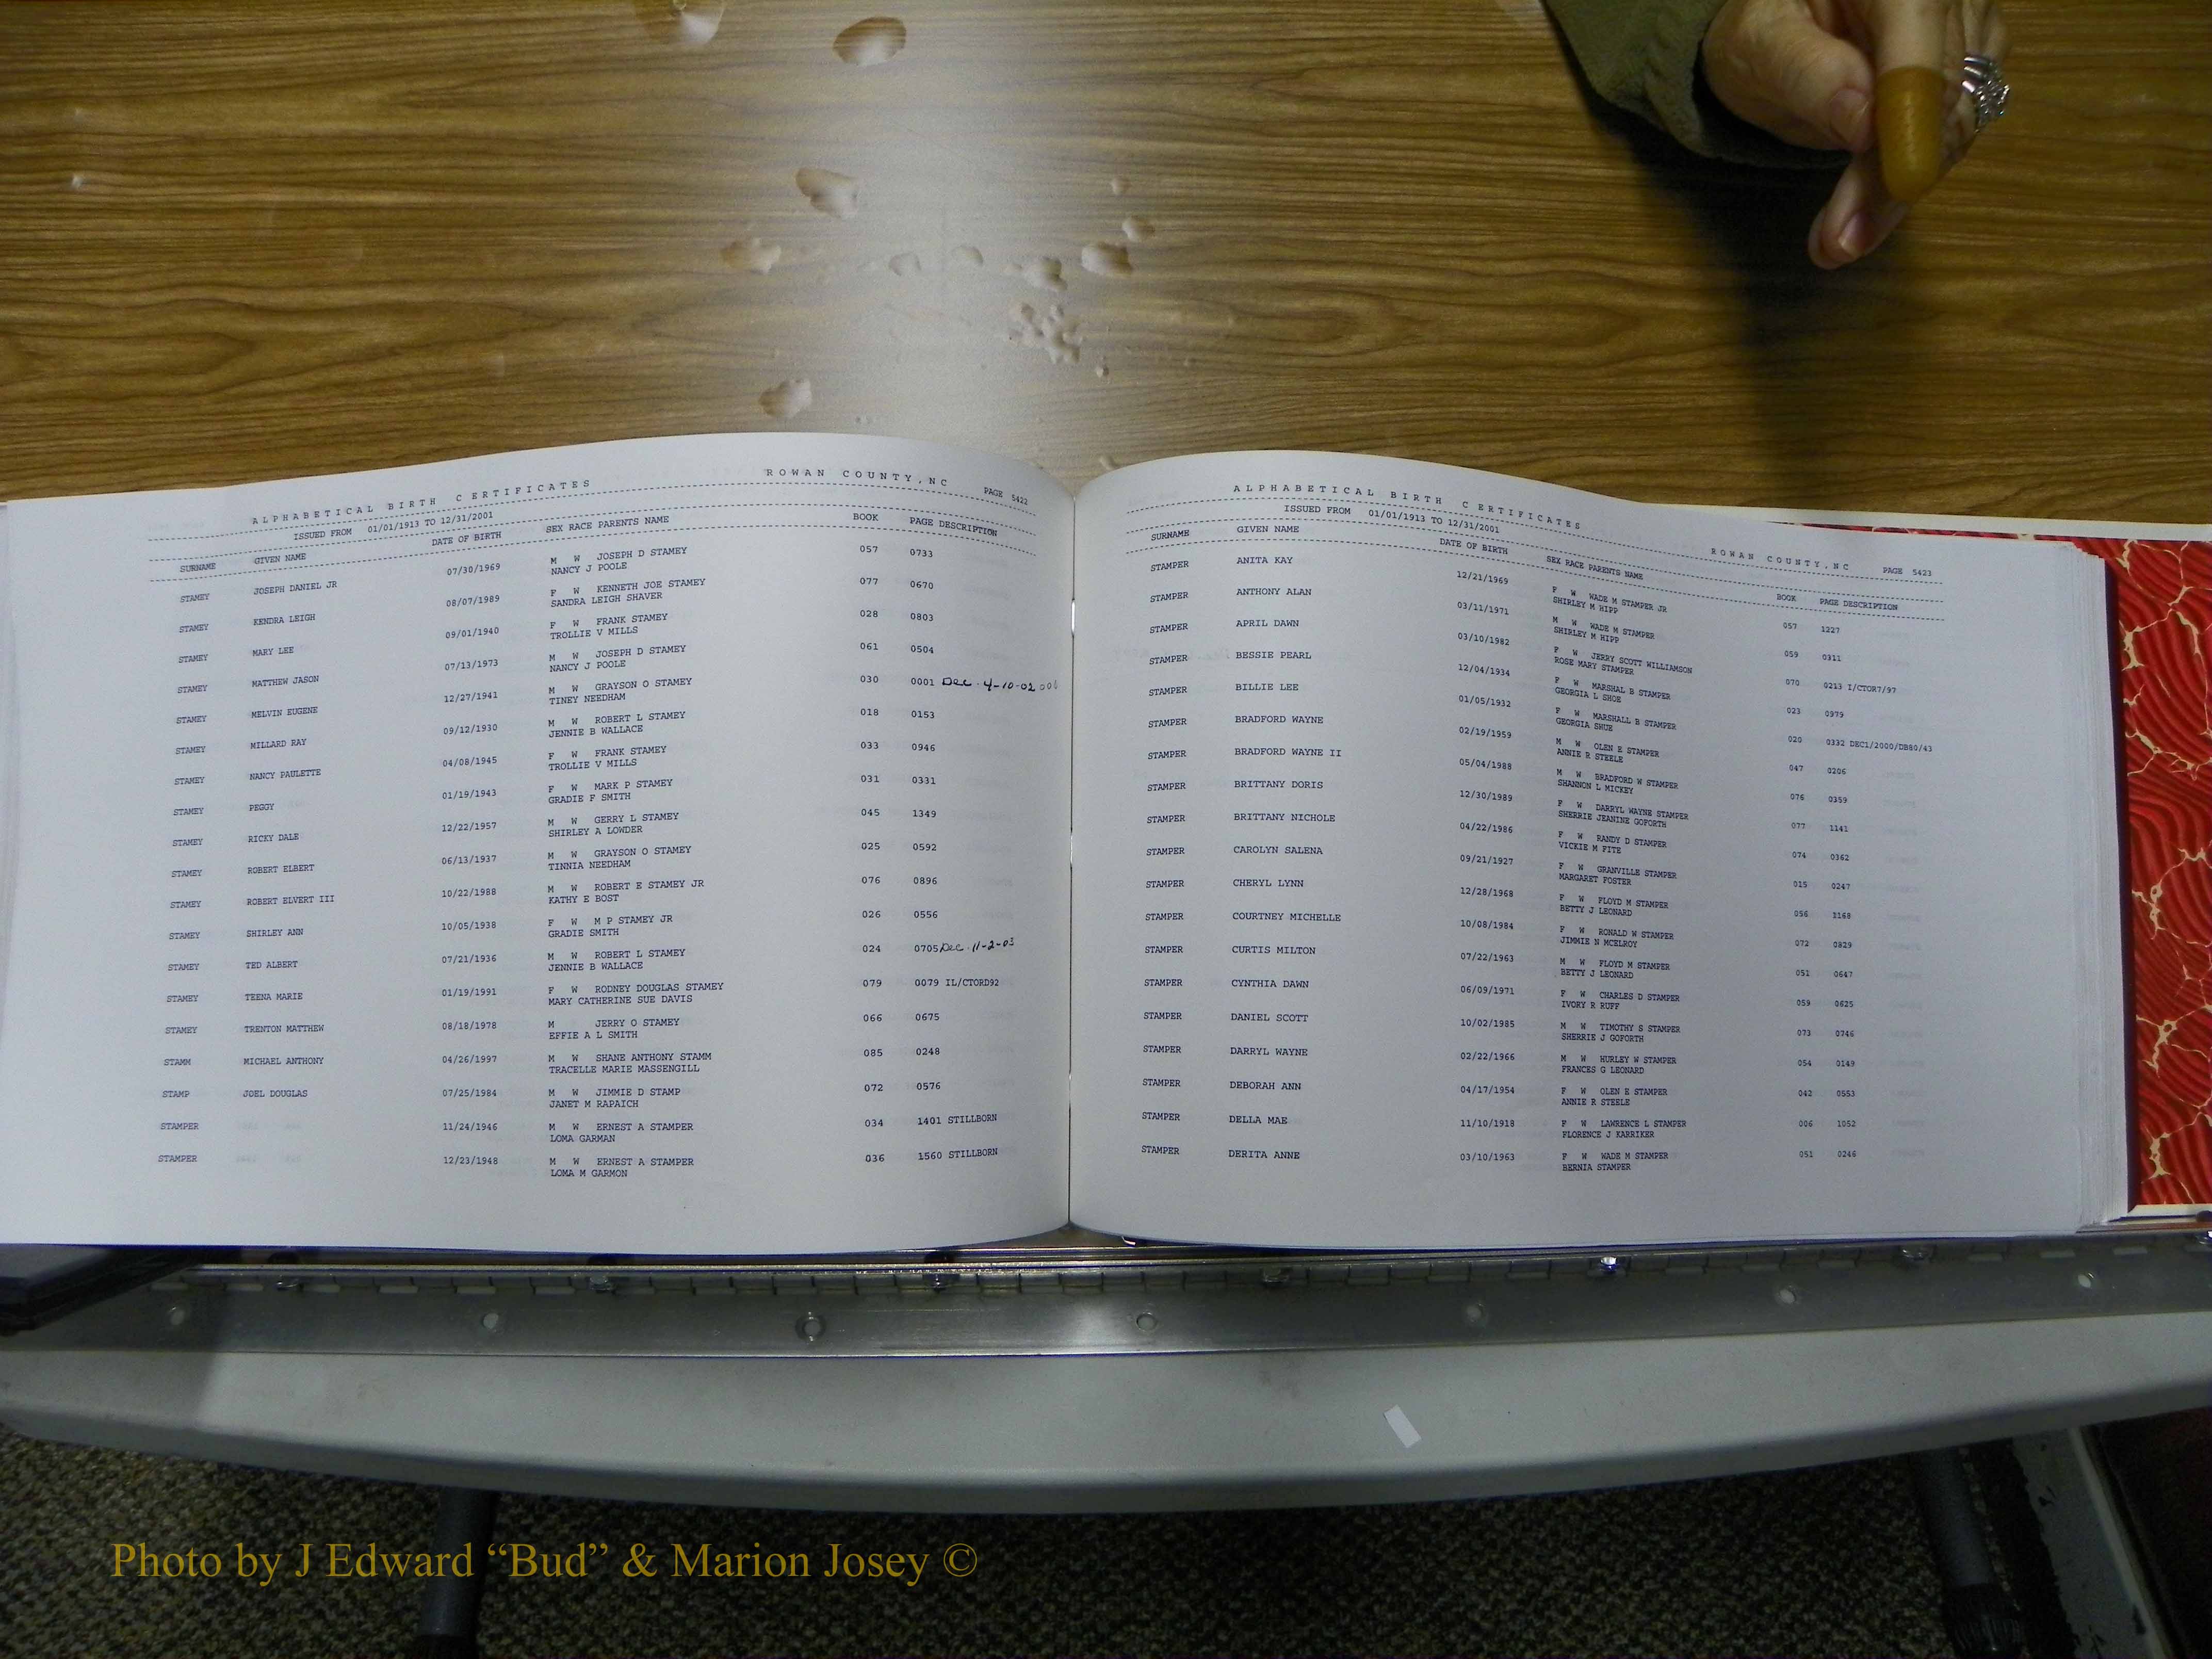 ALPHABETICAL BIRTH CERTIFICATES ROWAN COUNTY, NC PAGE 5422
ISSUED FROM 01/01/1913 TO 12/31/2001
SURNAME GIVEN NAME DATE OF BIRTH SEX RACE PARENTS NAME BOOK PAGE DESCRIPTION
STAMEY JOSEPH DANIEL JR 07/30/1969 M W JOSEPH D STAMEY 057 0733
NANCY J POOLE
STAMEY KENDRA LEIGH 08/07/1989 F W KENNETH JOE STAMEY 077 0670
SANDRA LEIGH SHAVER
STAMEY MARY LEE 09/01/1940 F W FRANK STAMEY 028 0803
TROLLIE V MILLS
STAMEY MATTHEW JASON 07/13/1973 M W JOSEPH D STAMEY 061 0504
NANCY J POOLE
STAMEY MELVIN EUGENE 12/27/1941 M W GRAYSON O STAMEY 030 0001 Dec. 4-10-02
TINEY NEEDHAM
STAMEY MILLARD RAY 09/12/1930 M W ROBERT L STAMEY 018 0153
JENNIE B WALLACE
STAMEY NANCY PAULETTE 04/08/1945 F W FRANK STAMEY 033 0946
TROLLIE V MILLS
STAMEY PEGGY 01/19/1943 F W MARK P STAMEY 031 0331
GRADIE F SMITH
STAMEY RICKY DALE 12/22/1957 M W GERRY L STAMEY 045 1349
SHIRLEY A LOWDER
STAMEY ROBERT ELBERT 06/13/1937 M W GRAYSON O STAMEY 025 0592
TINNIA NEEDHAM
STAMEY ROBERT ELVERT III 10/22/1988 M W ROBERT E STAMEY JR 076 0896
KATHY E BOST
STAMEY SHIRLEY ANN 10/05/1938 F W M P STAMEY JR 026 0556
GRADIE SMITH
STAMEY TED ALBERT 07/21/1936 M W ROBERT L STAMEY 024 0705 Dec. 11-2-03
JENNIE B WALLACE
STAMEY TEENA MARIE 01/19/1991 F W RODNEY DOUGLAS STAMEY 079 0079 IL/CTORD92
MARY CATHERINE SUE DAVIS
STAMEY TRENTON MATTHEW 08/18/1978 M JERRY O STAMEY 066 0675
EFFIE A L SMITH
STAMM MICHAEL ANTHONY 04/26/1997 M W SHANE ANTHONY STAMM 085 0248
TRACELLE MARIE MASSENGILL
STAMP JOEL DOUGLAS 07/25/1984 M W JIMMIE D STAMP 072 0576
JANET M RAPAICH
STAMPER 11/24/1946 M W ERNEST A STAMPER 034 1401 STILLBORN
LOMA GARMAN
STAMPER 12/23/1948 M W ERNEST A STAMPER 036 1560 STILLBORN
LOMA M GARMON
ALPHABETICAL BIRTH CERTIFICATES ROWAN COUNTY, NC PAGE 5423
ISSUED FROM 01/01/1913 TO 12/31/2001
SURNAME GIVEN NAME DATE OF BIRTH SEX RACE PARENTS NAME BOOK PAGE DESCRIPTION
STAMPER ANITA KAY 12/21/1969 F W WADE M STAMPER JR 057 1227
SHIRLEY M HIPP
STAMPER ANTHONY ALAN 03/11/1971 M W WADE M STAMPER 059 0311
SHIRLEY M HIPP
STAMPER APRIL DAWN 03/10/1982 F W JERRY SCOTT WILLIAMSON 070 0213 I/CTOR7/97
ROSE MARY STAMPER
STAMPER BESSIE PEARL 12/04/1934 F W MARSHAL B STAMPER 023 0979
GEORGIA L SHOE
STAMPER BILLIE LEE 01/05/1932 F W MARSHALL B STAMPER 020 0332 DEC1/2000/DB80/43
GEORGIA SHUE
STAMPER BRADFORD WAYNE 02/19/1959 M W OLEN E STAMPER 047 0206
ANNIE R STEELE
STAMPER BRADFORD WAYNE II 05/04/1988 M W BRADFORD W STAMPER 076 0359
SHANNON L MICKEY
STAMPER BRITTANY DORIS 12/30/1989 F W DARRYL WAYNE STAMPER 077 1141
SHERRIE JEANINE GOFORTH
STAMPER BRITTANY NICHOLE 04/22/1986 F W RANDY D STAMPER 074 0362
VICKIE M FITE
STAMPER CAROLYN SALENA 09/21/1927 F W GRANVILLE STAMPER 015 0247
MARGARET FOSTER
STAMPER CHERYL LYNN 12/28/1968 F W FLOYD M STAMPER 056 1168
BETTY J LEONARD
STAMPER COURTNEY MICHELLE 10/08/1984 F W RONALD W STAMPER 072 0829
JIMMIE N MCELROY
STAMPER CURTIS MILTON 07/22/1963 M W FLOYD M STAMPER 051 0647
BETTY J LEONARD
STAMPER CYNTHIA DAWN 06/09/1971 F W CHARLES D STAMPER 059 0625
IVORY R RUFF
STAMPER DANIEL SCOTT 10/02/1985 M W TIMOTHY S STAMPER 073 0746
SHERRIE J GOFORTH
STAMPER DARRYL WAYNE 02/22/1966 M W HURLEY W STAMPER 054 0149
FRANCES G LEONARD
STAMPER DEBORAH ANN 04/17/1954 F W OLEN E STAMPER 042 0553
ANNIE R STEELE
STAMPER DELLA MAE 11/10/1918 F W LAWRENCE L STAMPER 006 1052
FLORENCE J KARRIKER
STAMPER DERITA ANNE 03/10/1963 F W WADE M STAMPER 051 0246
BERNIA STAMPER
Photo by J Edward “Bud” & Marion Josey ©